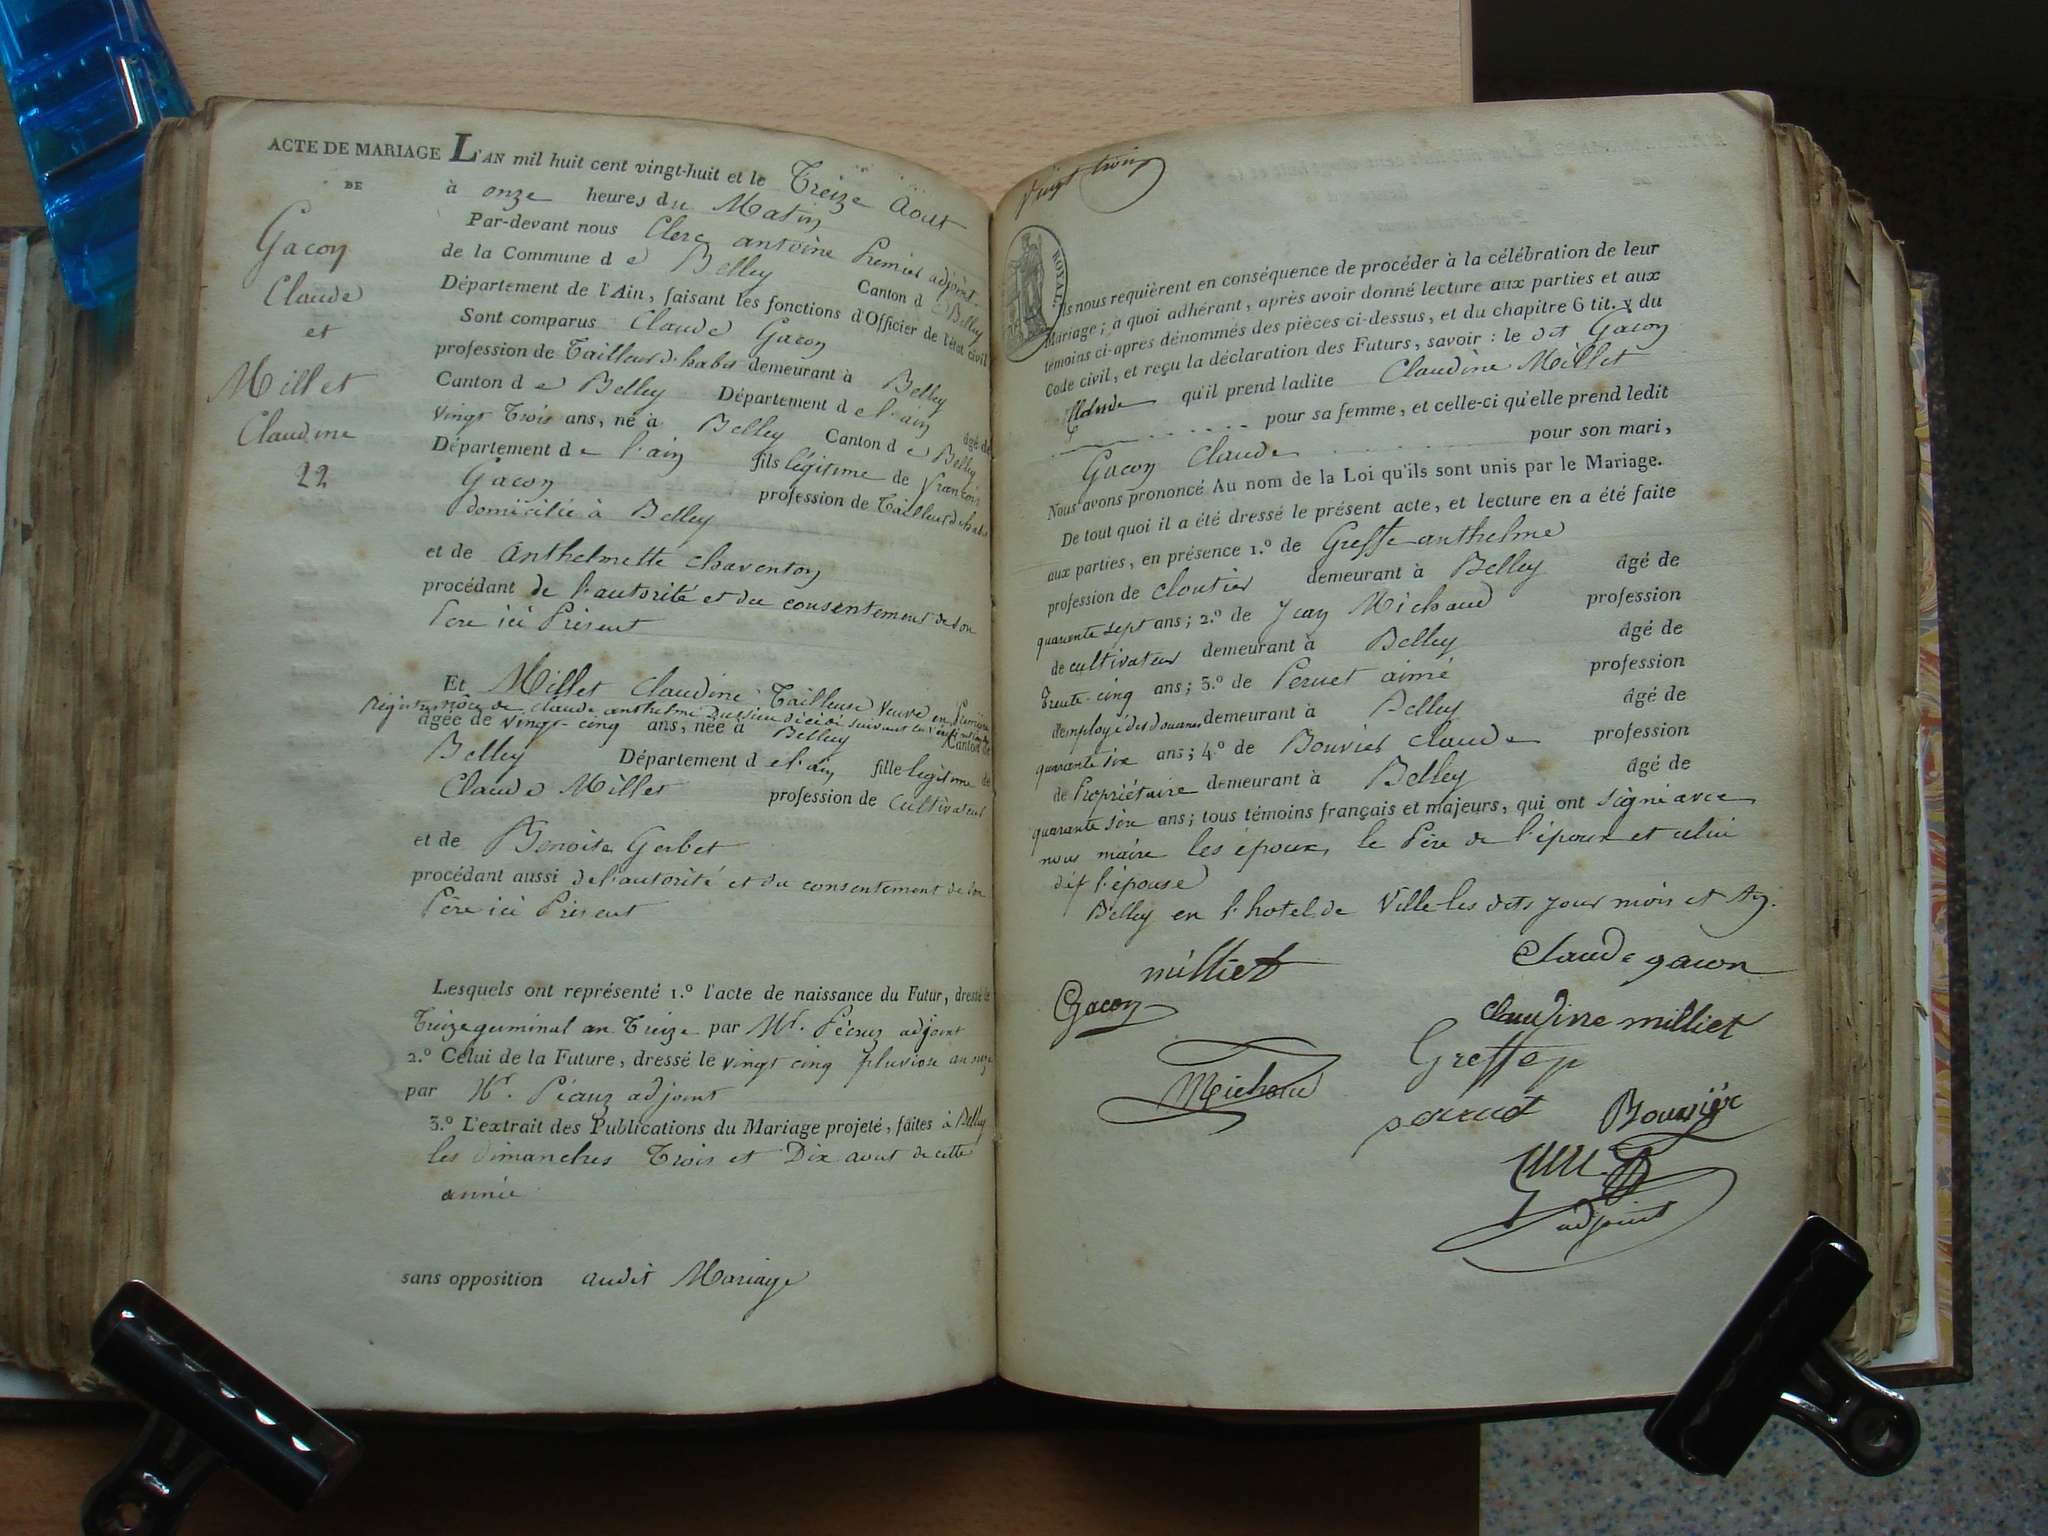 ACTE DE MARIAGE L'AN mil huit cent vingt-huit et le Treize Aout
DE
à onze heures du Matin
Par-devant nous Clerc antoine Premier adjoint
de la Commune de Belley Canton de Belley
Département de l'Ain, faisant les fonctions d'Officier de l'état civil
Gacon
Claude
et
Millet
Claudine
22
Sont comparus Claude Gacon
profession de Tailleur d'habit demeurant à Belley
Canton de Belley Département de l'ain âgé de
vingt Trois ans, né à Belley Canton de Belley
Département de l'ain fils légitime de francois
Gacon profession de Tailleur d'habit
domicilié à Belley
et de Anthelmette Chaventon
procédant de l'autorité et du consentement de son
Père ici Présent
Et Millet Claudine Tailleuse veuve en Premiere
nôce de claude anthelme décédé suivant
âgée de vingt-cinq ans, née à Belley Canton de
Belley Département de l'ain fille legitime de
Claude Millet profession de cultivateur
et de Benoite Gerbet
procédant aussi de l'autorité et du consentement de son
Père ici Présent
Lesquels ont représenté 1.º l'acte de naissance du Futur, dressé le
Treize germinal an Treize par Mr. Pécauz adjoint
2.º Celui de la Future, dressé le vingt cinq pluviose an onze
par Mr. Pécauz adjoint
3.º L'extrait des Publications du Mariage projeté, faites à Belley
les dimanches Trois et Dix aout de cette
année
sans opposition audit Mariage
Vingt trois
ROYAL
Ils nous requièrent en conséquence de procéder à la célébration de leur
Mariage; à quoi adhérant, après avoir donné lecture aux parties et aux
témoins ci-après dénommés des pièces ci-dessus, et du chapitre 6 tit. v du
Code civil, et reçu la déclaration des Futurs, savoir: le dit Gacon
Claude qu'il prend ladite Claudine Millet
pour sa femme, et celle-ci qu'elle prend ledit
Gacon Claude pour son mari,
Nous avons prononcé Au nom de la Loi qu'ils sont unis par le Mariage.
De tout quoi il a été dressé le présent acte, et lecture en a été faite
aux parties, en présence 1.º de Greffe anthelme
profession de cloutier demeurant à Belley âgé de
quarante sept ans; 2.º de Jean Michaud profession
de cultivateur demeurant à Belley âgé de
Trente-cinq ans; 3.º de Pernet aimé profession
d'employé des douanes demeurant à Belley âgé de
quarante six ans; 4.º de Bouvier Claude profession
de Propriétaire demeurant à Belley âgé de
quarante six ans; tous témoins français et majeurs, qui ont signé avec
nous maire les époux, le Père de l'époux et celui
de l'épouse
Belley en l'hotel de Ville les dits jour mois et An.
milliet
Claude gacon
Gacon
Claudine milliet
Greffe
Michaud
pernet
Bouvier
adjoint